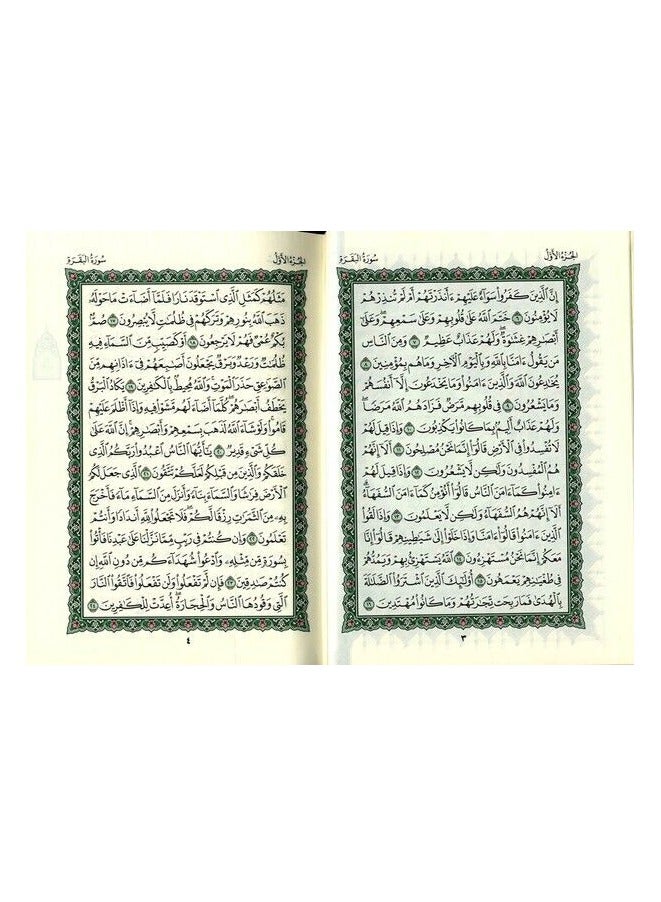 الجزء الأول
سورة البقرة
إِنَّ ٱلَّذِينَ كَفَرُوا۟ سَوَآءٌ عَلَيْهِمْ ءَأَنذَرْتَهُمْ أَمْ لَمْ تُنذِرْهُمْ
لَا يُؤْمِنُونَ ٦ خَتَمَ ٱللَّهُ عَلَىٰ قُلُوبِهِمْ وَعَلَىٰ سَمْعِهِمْ ۖ وَعَلَىٰٓ
أَبْصَٰرِهِمْ غِشَٰوَةٌ ۖ وَلَهُمْ عَذَابٌ عَظِيمٌ ٧ وَمِنَ ٱلنَّاسِ
مَن يَقُولُ ءَامَنَّا بِٱللَّهِ وَبِٱلْيَوْمِ ٱلْـَٔاخِرِ وَمَا هُم بِمُؤْمِنِينَ ٨
يُخَٰدِعُونَ ٱللَّهَ وَٱلَّذِينَ ءَامَنُوا۟ وَمَا يَخْدَعُونَ إِلَّآ أَنفُسَهُمْ
وَمَا يَشْعُرُونَ ٩ فِى قُلُوبِهِم مَّرَضٌ فَزَادَهُمُ ٱللَّهُ مَرَضًا ۖ
وَلَهُمْ عَذَابٌ أَلِيمٌۢ بِمَا كَانُوا۟ يَكْذِبُونَ ١٠ وَإِذَا قِيلَ لَهُمْ
لَا تُفْسِدُوا۟ فِى ٱلْأَرْضِ قَالُوٓا۟ إِنَّمَا نَحْنُ مُصْلِحُونَ ١١ أَلَآ إِنَّهُمْ
هُمُ ٱلْمُفْسِدُونَ وَلَٰكِن لَّا يَشْعُرُونَ ١٢ وَإِذَا قِيلَ لَهُمْ
ءَامِنُوا۟ كَمَآ ءَامَنَ ٱلنَّاسُ قَالُوٓا۟ أَنُؤْمِنُ كَمَآ ءَامَنَ ٱلسُّفَهَآءُ ۗ
أَلَآ إِنَّهُمْ هُمُ ٱلسُّفَهَآءُ وَلَٰكِن لَّا يَعْلَمُونَ ١٣ وَإِذَا لَقُوا۟
ٱلَّذِينَ ءَامَنُوا۟ قَالُوٓا۟ ءَامَنَّا وَإِذَا خَلَوْا۟ إِلَىٰ شَيَٰطِينِهِمْ قَالُوٓا۟ إِنَّا
مَعَكُمْ إِنَّمَا نَحْنُ مُسْتَهْزِءُونَ ١٤ ٱللَّهُ يَسْتَهْزِئُ بِهِمْ وَيَمُدُّهُمْ
فِى طُغْيَٰنِهِمْ يَعْمَهُونَ ١٥ أُو۟لَٰٓئِكَ ٱلَّذِينَ ٱشْتَرَوُا۟ ٱلضَّلَٰلَةَ
بِٱلْهُدَىٰ فَمَا رَبِحَت تِّجَٰرَتُهُمْ وَمَا كَانُوا۟ مُهْتَدِينَ ١٦
٣
الجزء الأول
سورة البقرة
مَثَلُهُمْ كَمَثَلِ ٱلَّذِى ٱسْتَوْقَدَ نَارًا فَلَمَّآ أَضَآءَتْ مَا حَوْلَهُۥ
ذَهَبَ ٱللَّهُ بِنُورِهِمْ وَتَرَكَهُمْ فِى ظُلُمَٰتٍ لَّا يُبْصِرُونَ ١٧ صُمٌّۢ
بُكْمٌ عُمْىٌ فَهُمْ لَا يَرْجِعُونَ ١٨ أَوْ كَصَيِّبٍ مِّنَ ٱلسَّمَآءِ فِيهِ
ظُلُمَٰتٌ وَرَعْدٌ وَبَرْقٌ يَجْعَلُونَ أَصَٰبِعَهُمْ فِىٓ ءَاذَانِهِم مِّنَ
ٱلصَّوَٰعِقِ حَذَرَ ٱلْمَوْتِ ۚ وَٱللَّهُ مُحِيطٌۢ بِٱلْكَٰفِرِينَ ١٩ يَكَادُ ٱلْبَرْقُ
يَخْطَفُ أَبْصَٰرَهُمْ ۖ كُلَّمَآ أَضَآءَ لَهُم مَّشَوْا۟ فِيهِ وَإِذَآ أَظْلَمَ عَلَيْهِمْ
قَامُوا۟ ۚ وَلَوْ شَآءَ ٱللَّهُ لَذَهَبَ بِسَمْعِهِمْ وَأَبْصَٰرِهِمْ ۚ إِنَّ ٱللَّهَ عَلَىٰ
كُلِّ شَىْءٍ قَدِيرٌ ٢٠ يَٰٓأَيُّهَا ٱلنَّاسُ ٱعْبُدُوا۟ رَبَّكُمُ ٱلَّذِى
خَلَقَكُمْ وَٱلَّذِينَ مِن قَبْلِكُمْ لَعَلَّكُمْ تَتَّقُونَ ٢١ ٱلَّذِى جَعَلَ لَكُمُ
ٱلْأَرْضَ فِرَٰشًا وَٱلسَّمَآءَ بِنَآءً وَأَنزَلَ مِنَ ٱلسَّمَآءِ مَآءً فَأَخْرَجَ
بِهِۦ مِنَ ٱلثَّمَرَٰتِ رِزْقًا لَّكُمْ ۖ فَلَا تَجْعَلُوا۟ لِلَّهِ أَندَادًا وَأَنتُمْ
تَعْلَمُونَ ٢٢ وَإِن كُنتُمْ فِى رَيْبٍ مِّمَّا نَزَّلْنَا عَلَىٰ عَبْدِنَا فَأْتُوا۟
بِسُورَةٍ مِّن مِّثْلِهِۦ وَٱدْعُوا۟ شُهَدَآءَكُم مِّن دُونِ ٱللَّهِ إِن
كُنتُمْ صَٰدِقِينَ ٢٣ فَإِن لَّمْ تَفْعَلُوا۟ وَلَن تَفْعَلُوا۟ فَٱتَّقُوا۟ ٱلنَّارَ
ٱلَّتِى وَقُودُهَا ٱلنَّاسُ وَٱلْحِجَارَةُ ۖ أُعِدَّتْ لِلْكَٰفِرِينَ ٢٤
٤